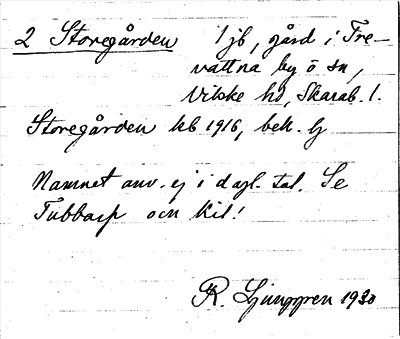 2 Storegården 1 jb, gård i Tre-
vattna by o sn,
Vilske hd, Skarab. l.
Storegården kb 1916, bek. lj
Namnet anv. ej i dagl. tal. Se
Tubbarp och kil!
R. Ljunggren 1930